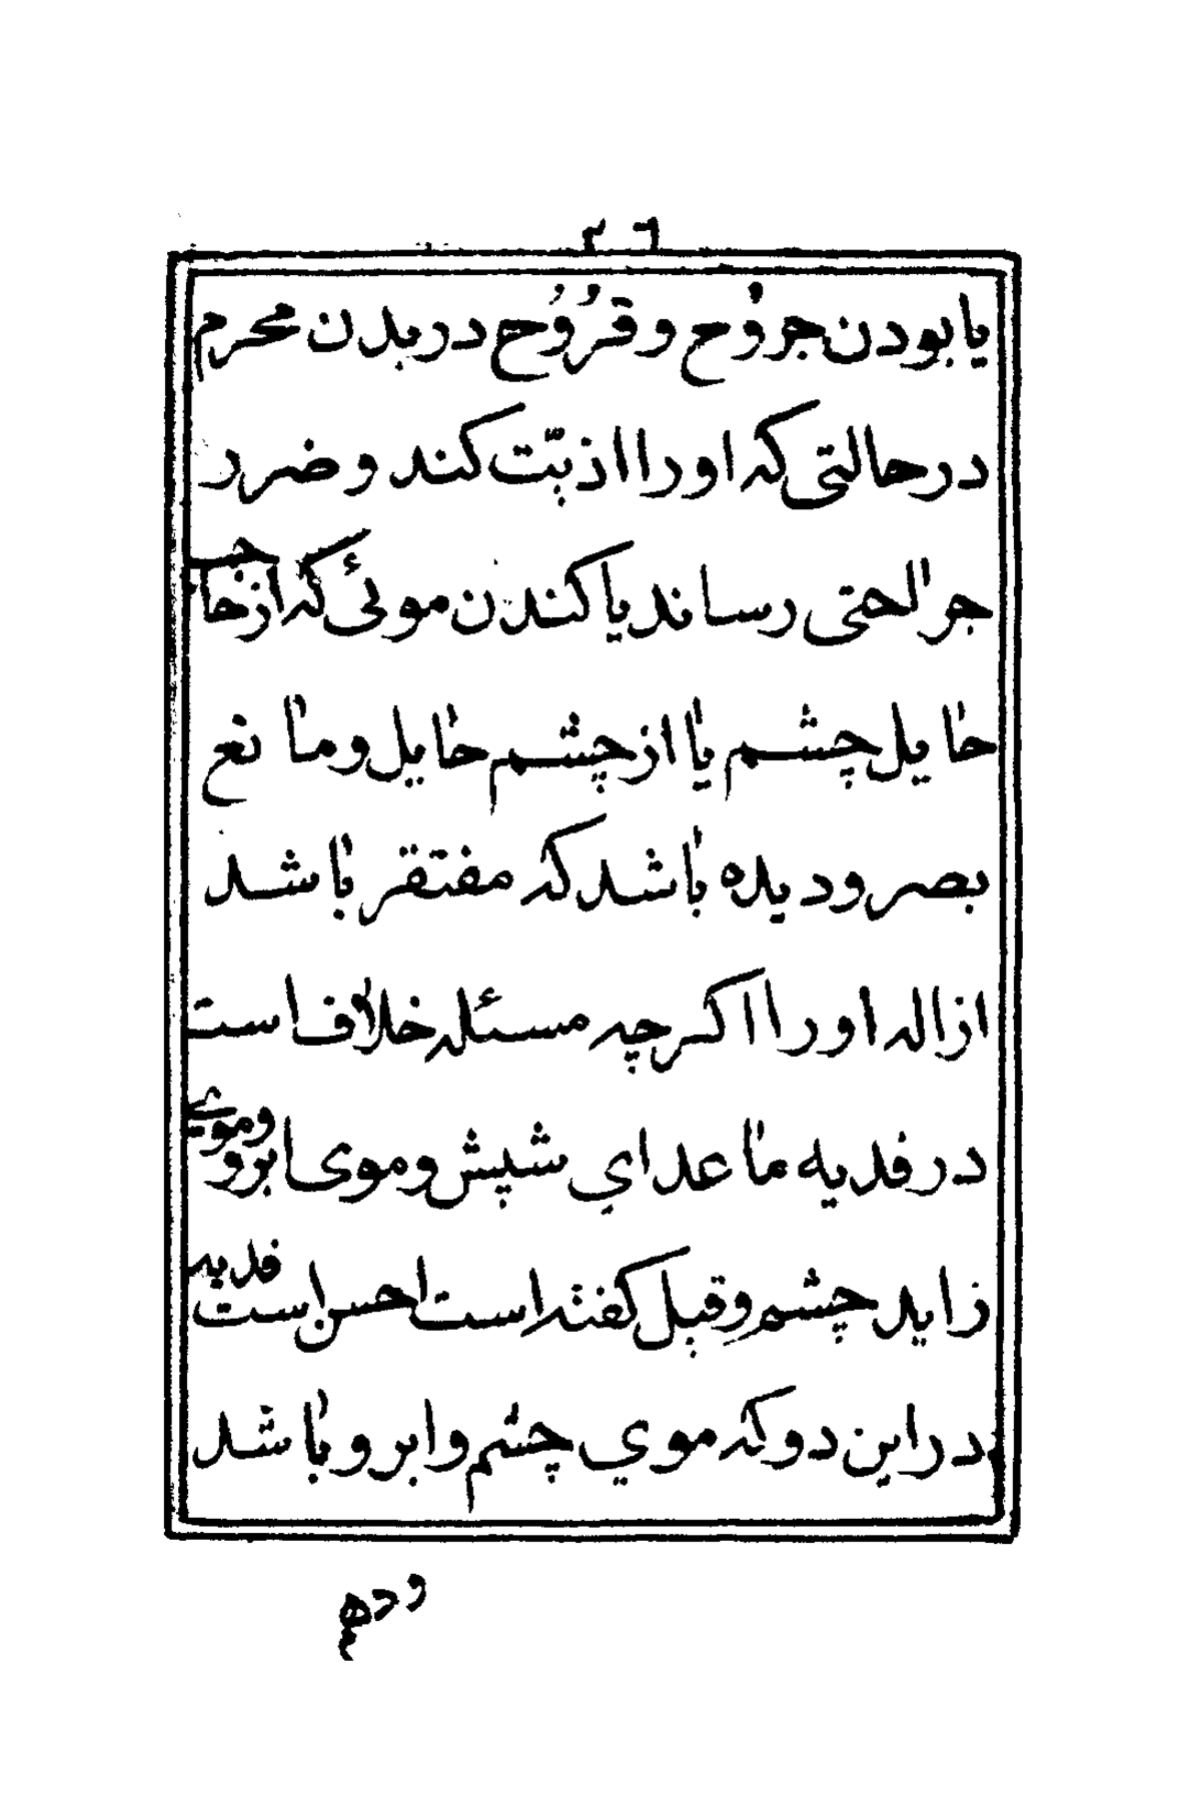 ٣٦
یا بودن جروُح و قرُوُح در بدن محرم
در حالتی که او را اذیّت کند و ضرر
جراحتی رساند یا کندن موئی که از جانب
حایل چشم یا از چشم حایل و مانع
بصر و دیده باشد که مفتقر باشد
ازاله او را اکرچه مسئله خلاف است
در فدیه ما عدای شپش و موی ابرو و موی
زاید چشم و قبل کفته است احسن است فدیه
در این دو که موی چشم و ابرو باشد
و دهم